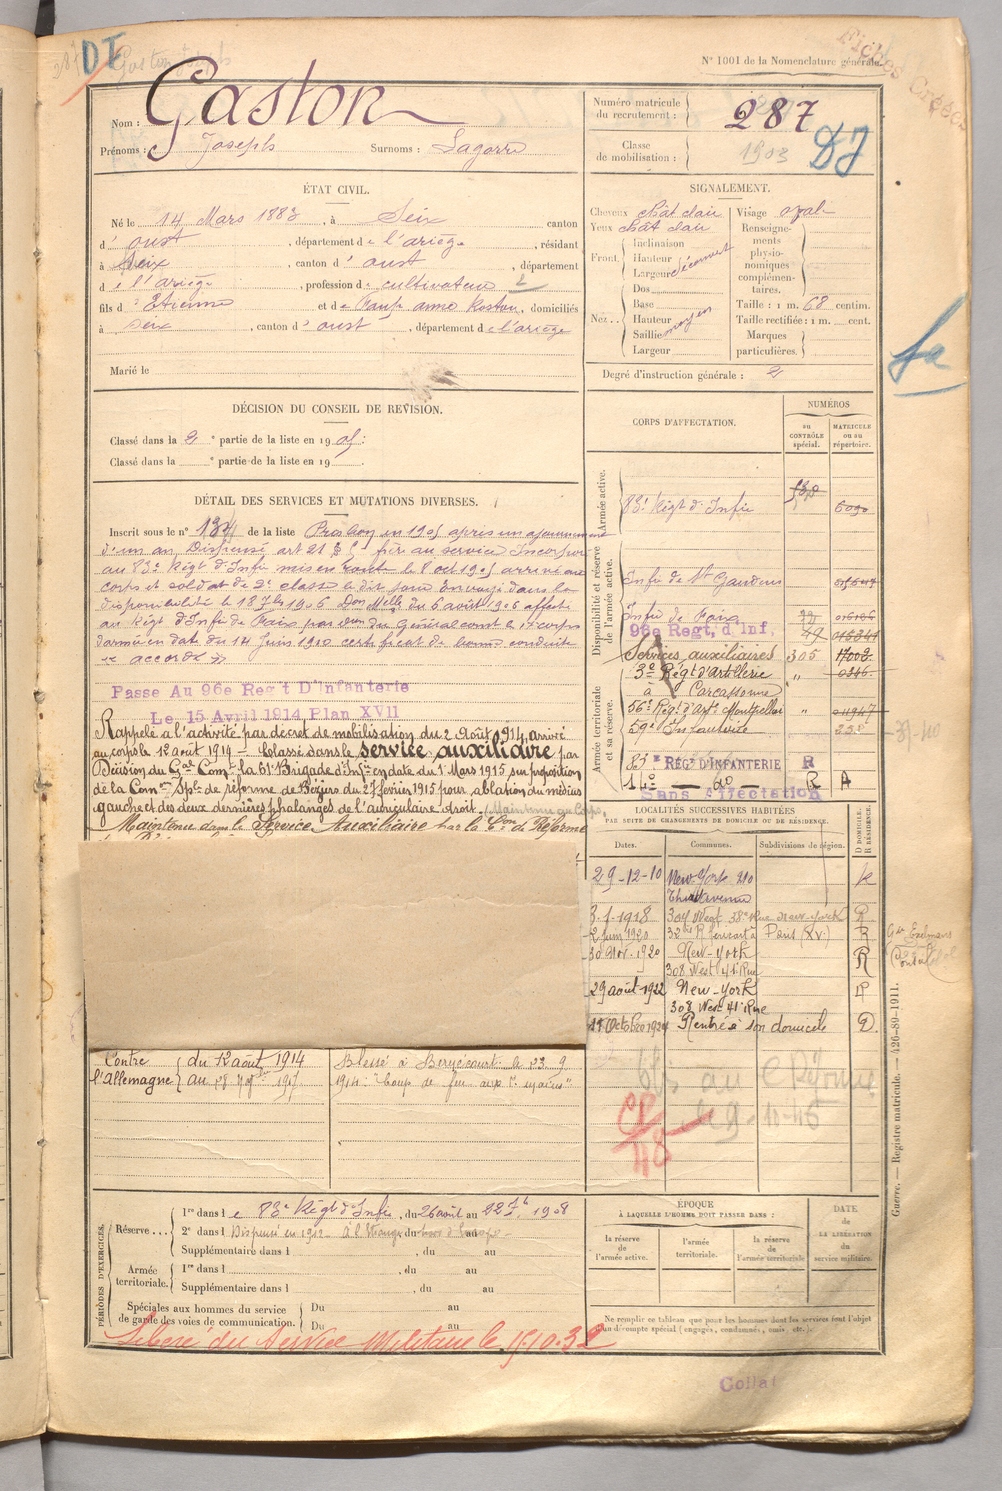 DJ
N° 1001 de la Nomenclature générale.
Fiches Créées
Nom : Gaston
Prénoms : Joseph Surnoms : Lagorre
Numéro matricule du recrutement : 287
Classe de mobilisation : 1903
DJ
ÉTAT CIVIL.
Né le 14 Mars 1883, à Seix canton
d' oust, département de l'ariège, résidant
à Seix, canton d' oust, département
de l'ariège, profession de cultivateur
fils d' Etienne et de Faup anne, domiciliés
à seix, canton d' oust, département de l'ariège
Marié le
SIGNALEMENT.
Cheveux chât clair Visage oval
Yeux chât clair Renseigne-
ments
physio-
nomiques
complémen-
taires.
Front. Inclinaison
Hauteur
Largeur découvert
Nez... Dos
Base
Hauteur
Saillie moyen
Largeur
Taille : 1 m. 68 centim.
Taille rectifiée : 1 m. cent.
Marques
particulières.
Degré d'instruction générale : 2
DÉCISION DU CONSEIL DE REVISION.
Classé dans la 2e partie de la liste en 1905 :
Classé dans la e partie de la liste en 19 .
DÉTAIL DES SERVICES ET MUTATIONS DIVERSES.
Inscrit sous le n° 134 de la liste Pro bon en 1905 après un ajournement
d'un an. Dispensé art 21 frère au service Incorporé
au 83e Régt d'Infie mis en route le 8 oct 1905 arrivé au
corps et soldat de 2e classe le dit jour Envoyé dans la
disponibilité le 18 7bre 1906 Don Melle du 6 août 1906 affecté
au Régt d'Infie de Foix par don du Général comt le 17e corps
d'armée en date du 14 Juin 1910 certificat de bonne conduite
"accordé"
Passe Au 96e Regt D'Infanterie
Le 15 Avril 1914 Plan XVII
Rappelé à l'activité par décret de mobilisation du 2 Août 1914, arrivé
au corps le 12 août 1914 — Classé dans le service auxiliaire par
Décision du Gal Comt la 61e Brigade d'Infie en date du 1er Mars 1915 sur proposition
de la Comon Sple de réforme de Béziers du 27 février 1915 pour ablation du médius
gauche et des deux dernières phalanges de l'auriculaire droit. (Maintenu au Corps.
Maintenu dans le Service Auxiliaire par la Con de Réforme
CORPS D'AFFECTATION.
NUMÉROS
au
CONTRÔLE
spécial.
MATRICULE
ou au
répertoire.
Armée active.
83e Régt d'Infie 6090
Disponibilité et réserve
de l'armée active.
Infie de St Gaudens
Infie de Foix
96e Regt, d'Inf,
49 015341
Services auxiliaires 305 17002
Armée territoriale
et sa réserve.
3e Régt d'Artillerie " 0346
à Carcassonne
56e Régt d'Artie Montpellier " 01947
59e Infanterie 220
83e REGt D'INFANTERIE R
14e do R A
Sans Affectation
LOCALITÉS SUCCESSIVES HABITÉES
PAR SUITE DE CHANGEMENTS DE DOMICILE OU DE RÉSIDENCE.
Dates. Communes. Subdivisions de région. D DOMICILE. R RÉSIDENCE.
29-12-10 New-York 210 R
Third avenue
8-1-1918 304 West 38e Rue new-york R
2 juin 1920 Paris (XV) R
30 Nov. 1920 New-York R
308 West 41e Rue
29 août 1922 New-York R
308 West 41e Rue
Octobre 1924 Rentré à son domicile D.
Contre
l'Allemagne
du 12 août 1914
au 28
Blessé à le 23 9
1914. "Coup de feu aux 2 mains"
PÉRIODES D'EXERCICES.
Réserve... 1re dans le 83e Régt d'Infie, du 26 août au 22 7bre 1908
2e dans l Dispensé en 1912 - à l'Etranger du hors d'Europe au
Supplémentaire dans l , du au
Armée
territoriale. 1re dans l , du au
Supplémentaire dans l , du au
Spéciales aux hommes du service
de garde des voies de communication. Du au
Du au
Libéré du Service Militaire le 15-10-32
ÉPOQUE
À LAQUELLE L'HOMME DOIT PASSER DANS :
la réserve
de
l'armée active.
l'armée
territoriale.
la réserve
de
l'armée territoriale
DATE
de
LA LIBÉRATION
du
service militaire.
Ne remplir ce tableau que pour les hommes dont les services font l'objet
d'un décompte spécial (engagés, condamnés, omis, etc.).
Guerre. — Registre matricule. — 426-89-1911.